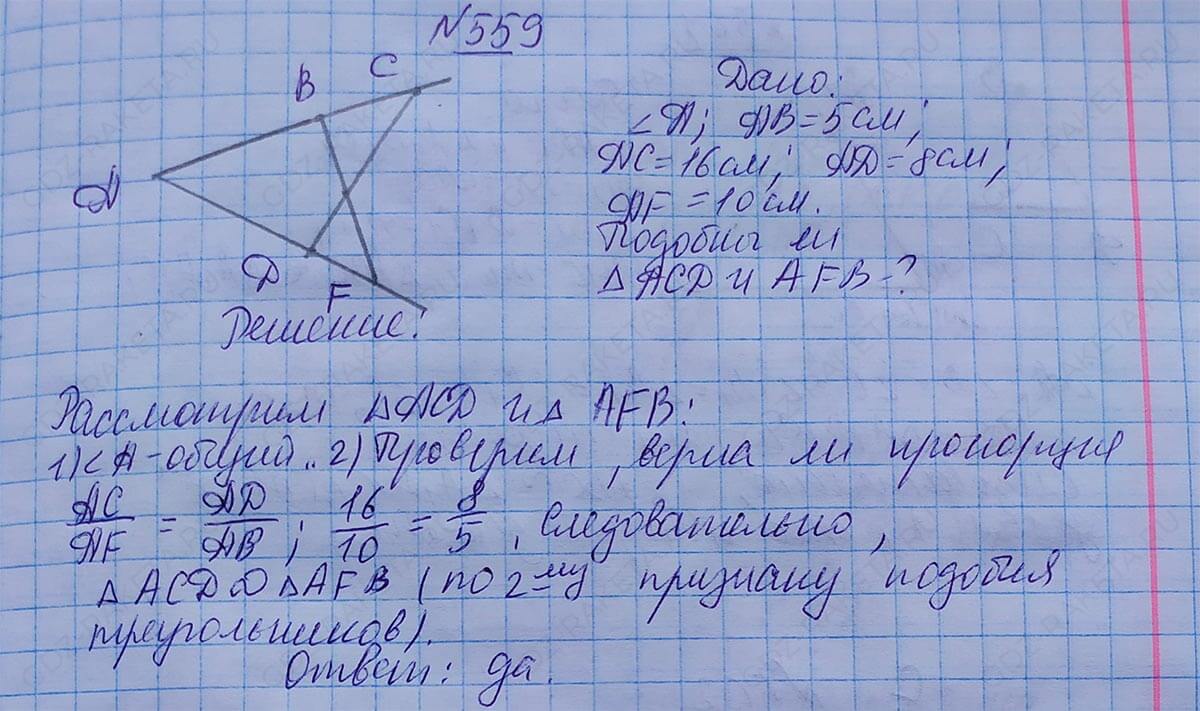 №559
B
C
A
D
F
Дано:
∠A; AB = 5 см;
AC = 16 см; AD = 8 см;
AF = 10 см.
Подобны ли
△ ACD и AFB - ?
Решение:
Рассмотрим △ ACD и △ AFB:
1) ∠A - общий.. 2) Проверим, верна ли пропорция
AC/AF = AD/AB; 16/10 = 8/5, следовательно,
△ ACD ∾ △ AFB (по 2му признаку подобия
треугольников).
Ответ: да.